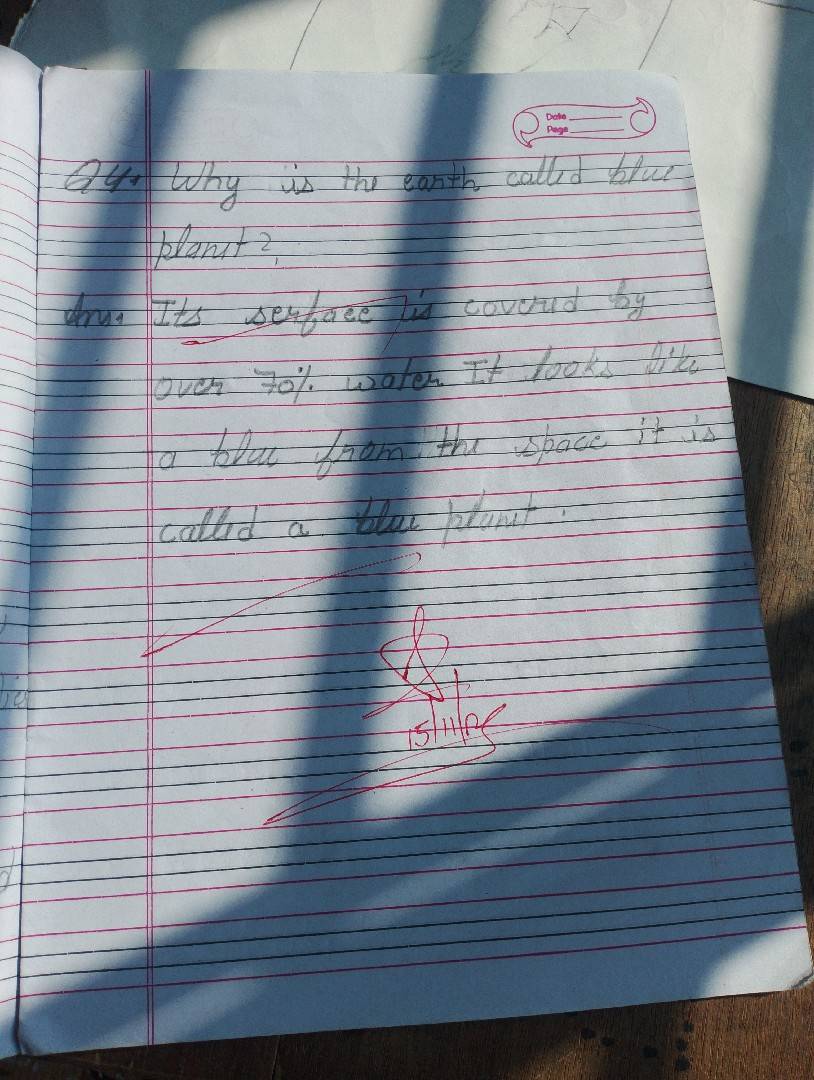 Date
Page
Q4. Why is the earth called blue
planit?
Ans. Its serface is covered by
over 70% water It looks like
a blue from the space it is
called a blue planit.
15/11/25